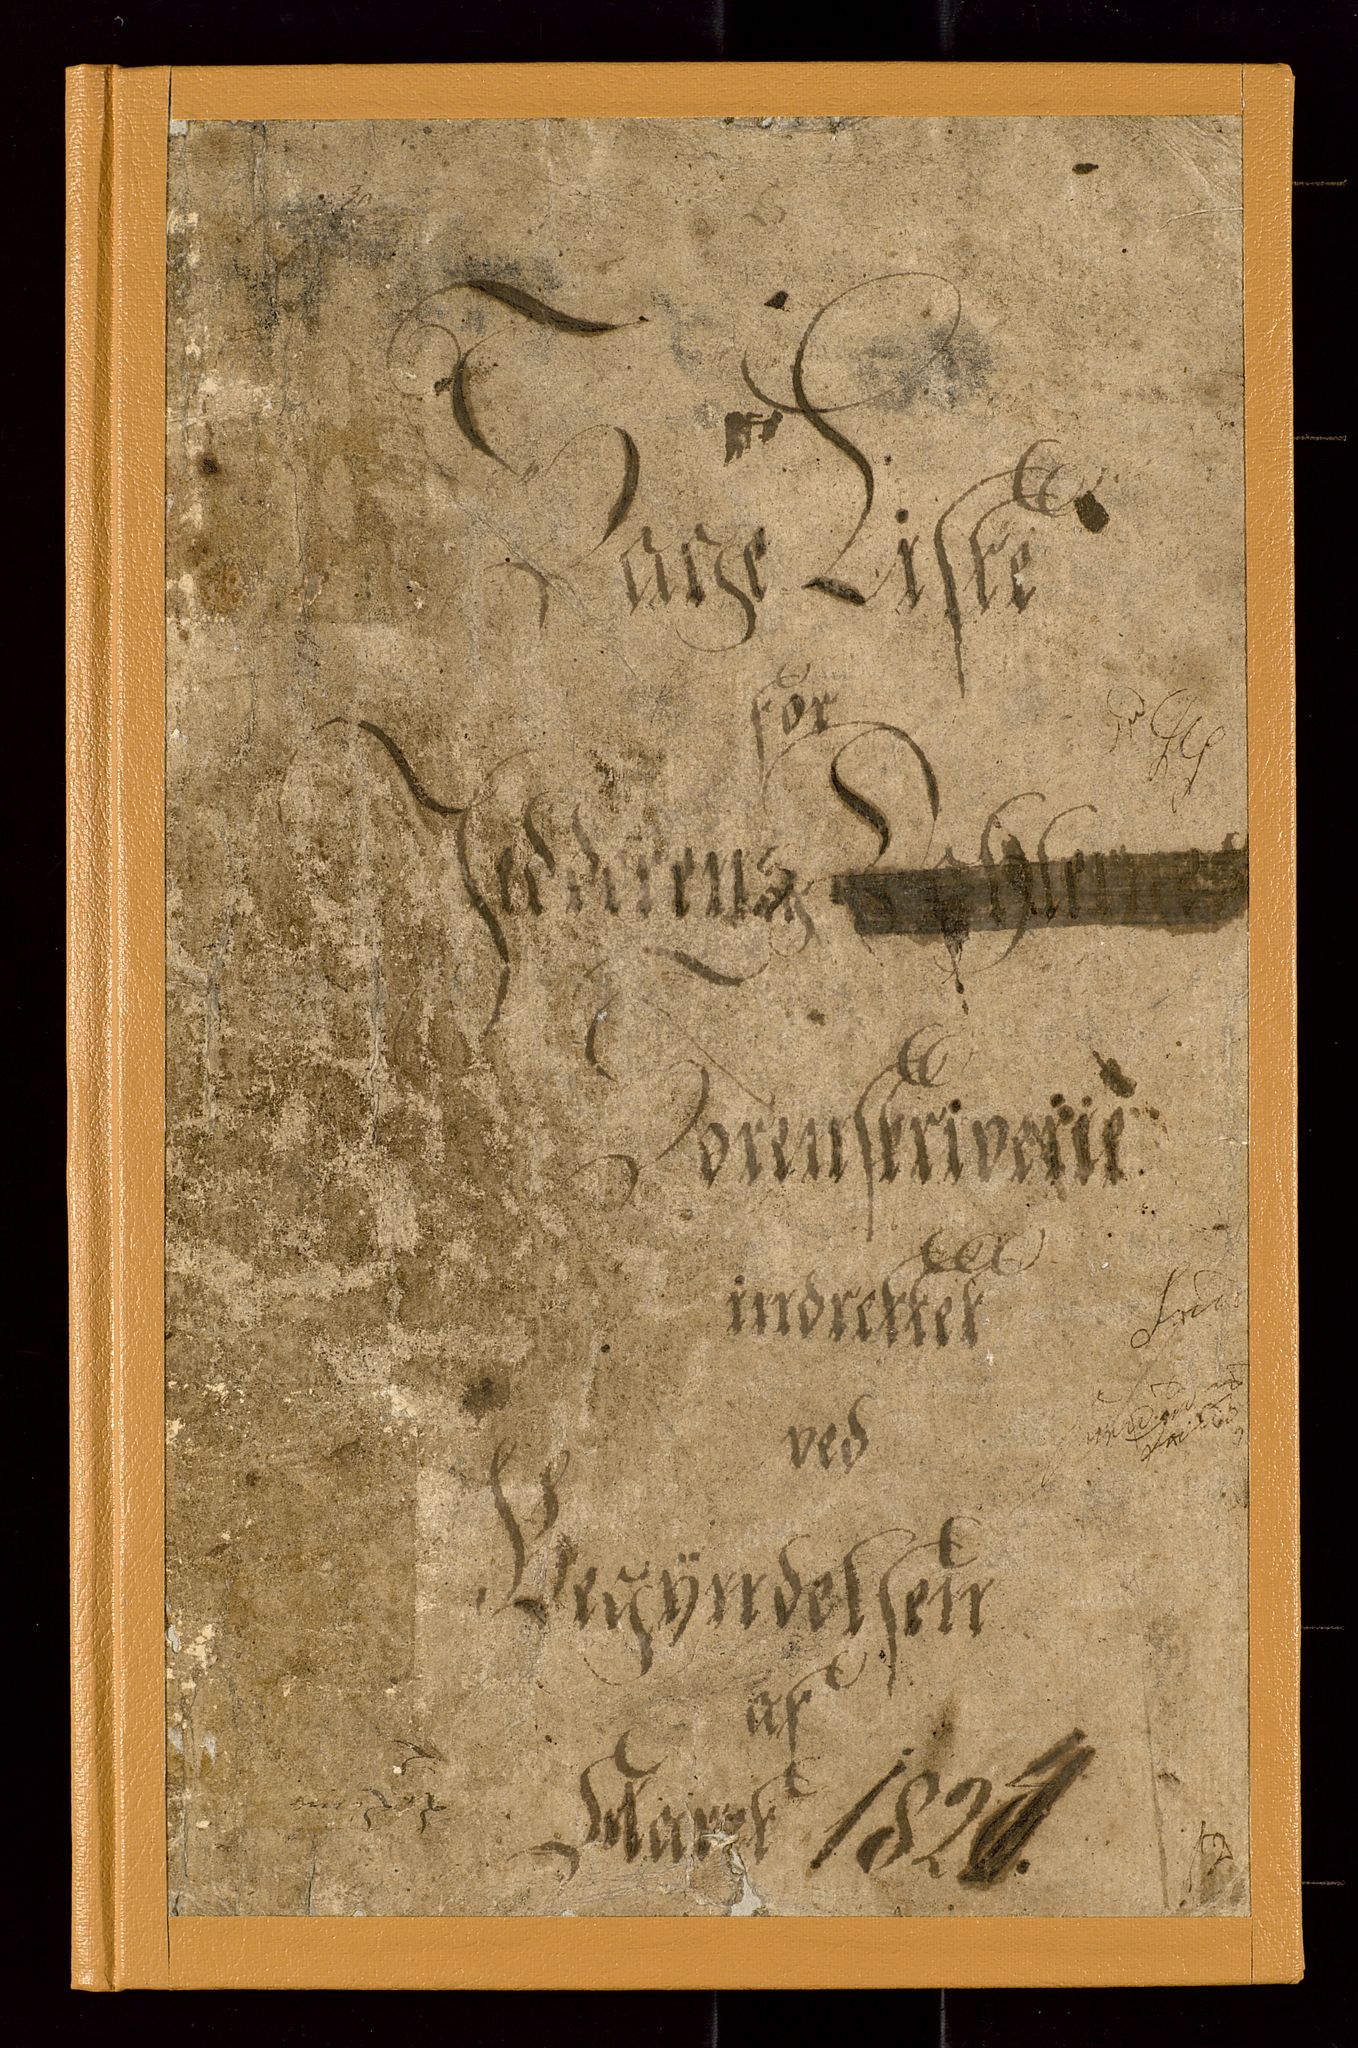 Sage Liste
for
Jedderens Dahlernes
Sorenskriverie
indrettet
ved
Begÿndelsen
af
Martz 1824.